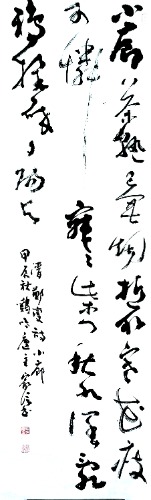 小廊茶熟已無烟折取寒花瘦
可憐寂寂柴門秋水闊亂
鴉揉碎夕陽天
清鄭燮詩小廊
甲辰秋鶴鳴廬主家